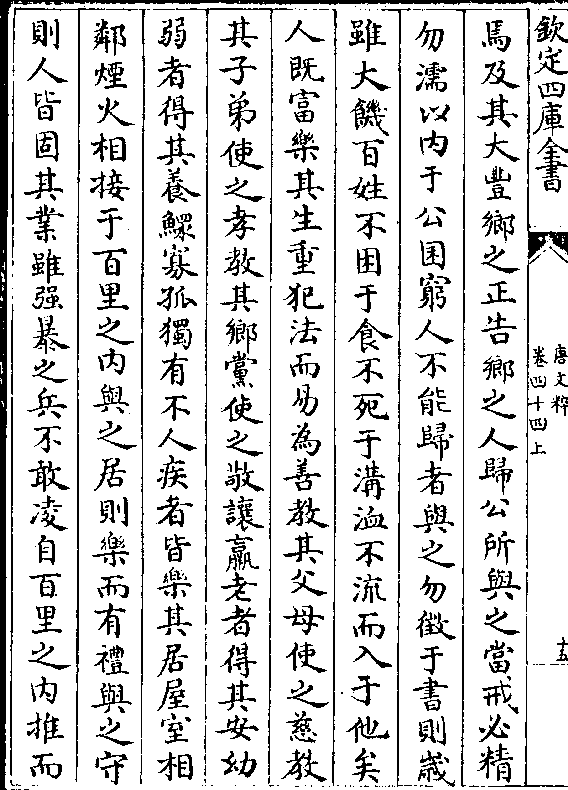 欽定四庫全書
唐文粹
卷四十四上
十五
焉及其大豐鄉之正告鄉之人歸公所與之當戒必精
勿濡以内于公囷窮人不能歸者與之勿徵于書則歲
雖大饑百姓不困于食不死于溝洫不流而入于他矣
人既富樂其生重犯法而易為善教其父母使之慈教
其子弟使之孝教其鄉黨使之敬讓羸老者得其安幼
弱者得其養鰥寡孤獨有不人疾者皆樂其居屋室相
鄰煙火相接于百里之内與之居則樂而有禮與之守
則人皆固其業雖强暴之兵不敢凌自百里之内推而